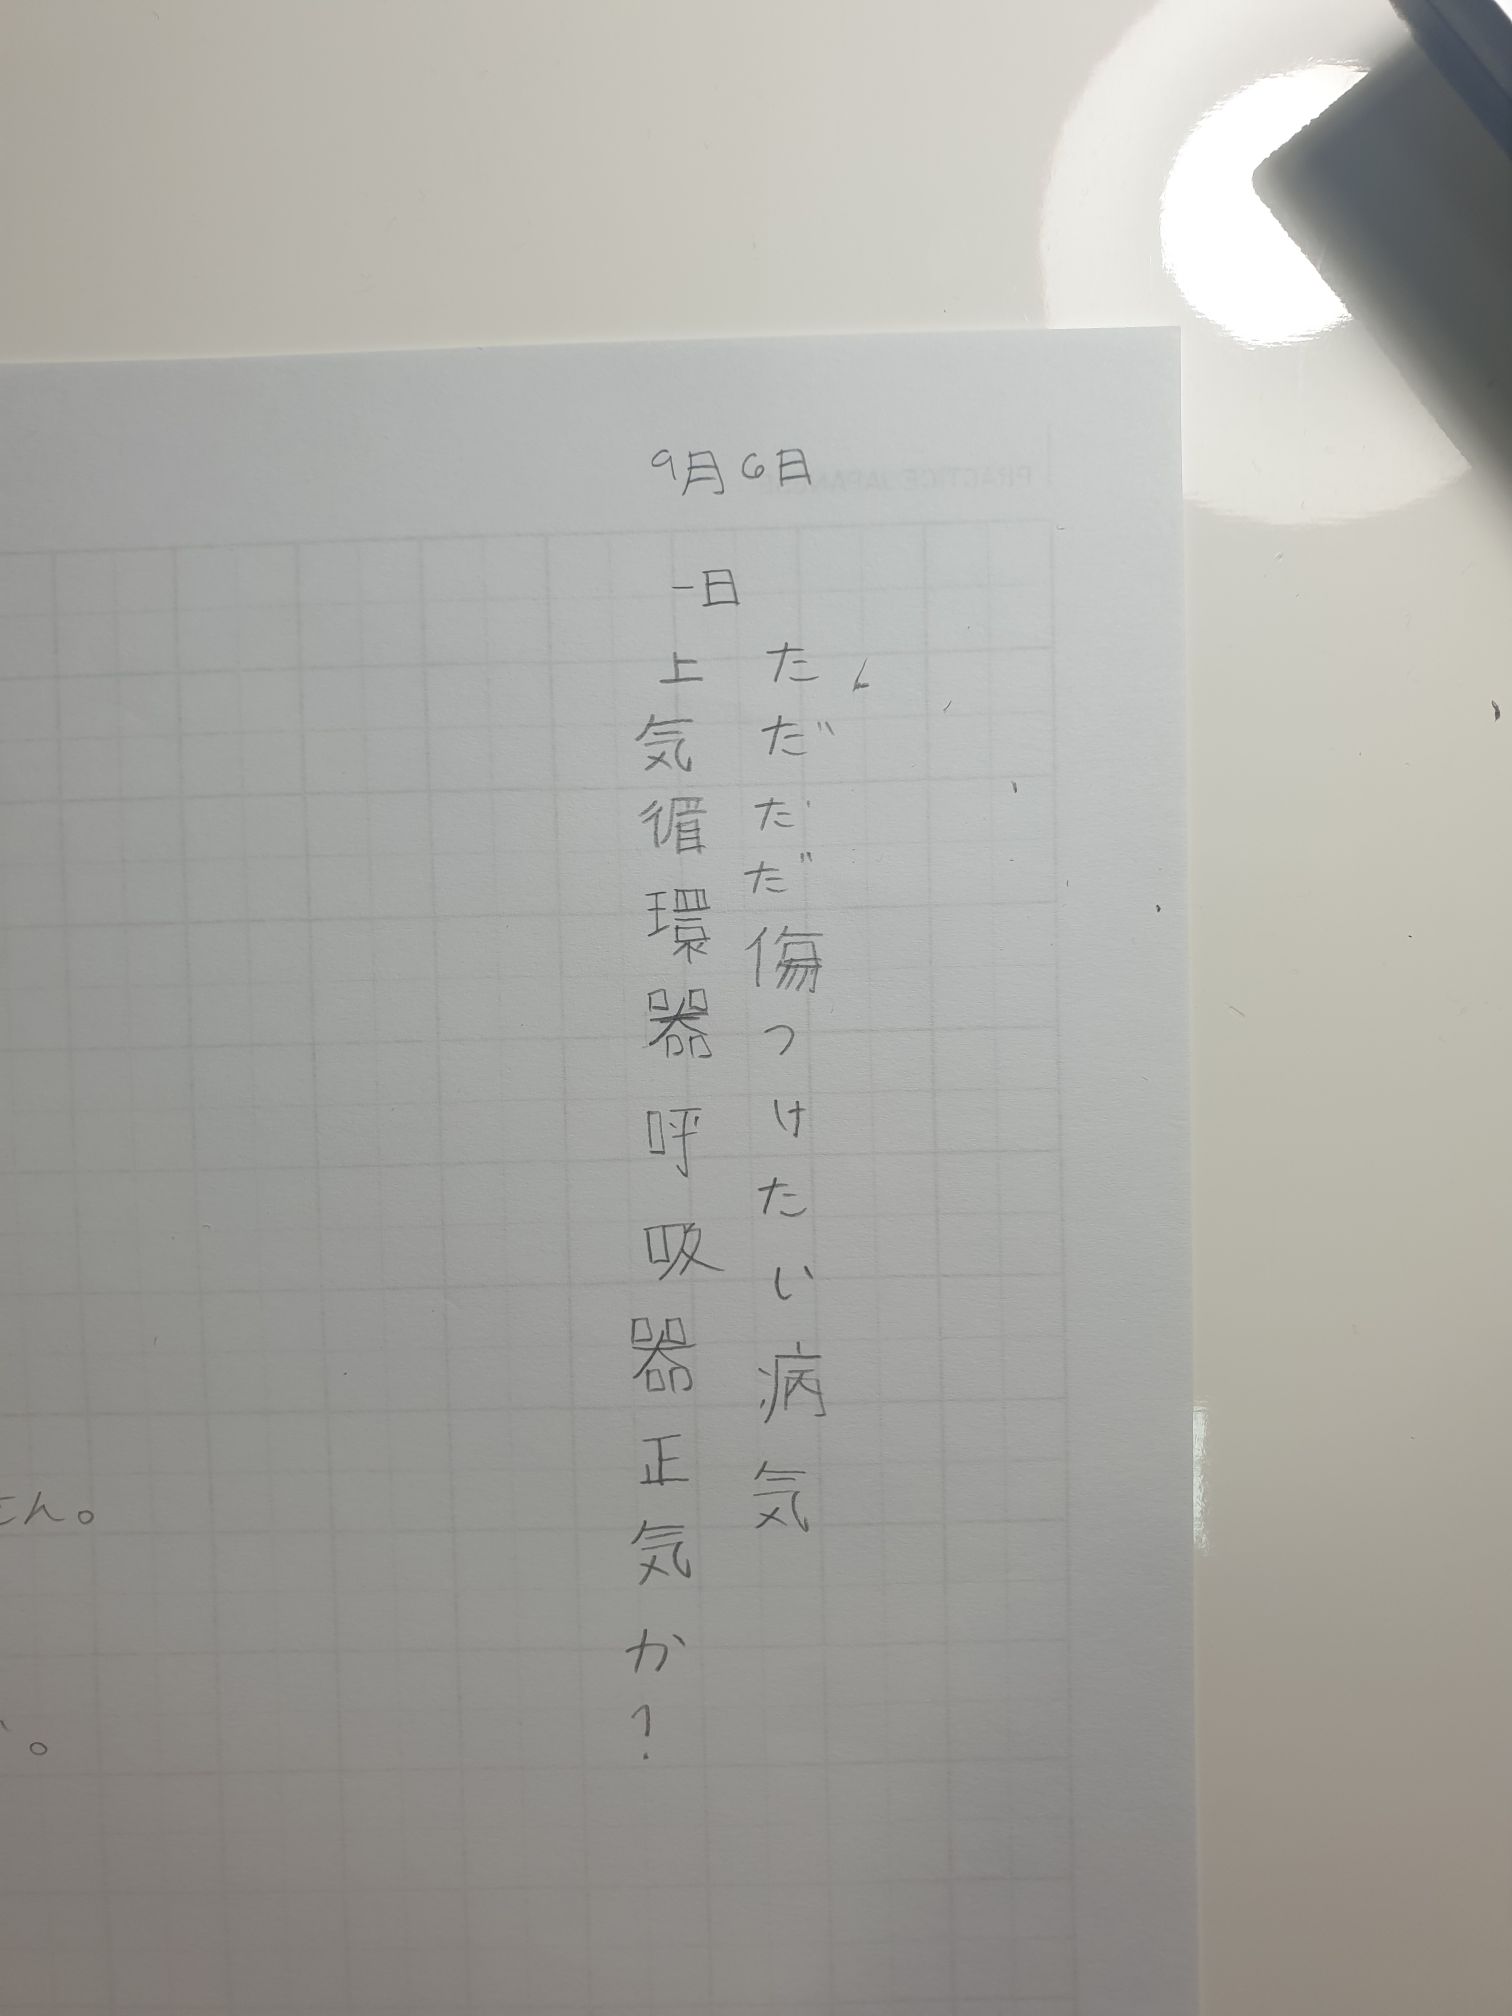 9月6日
一日
ただただ傷つけたい病気
上気循環器呼吸器正気か?
せん。
。
PRACTICE JAPANESE